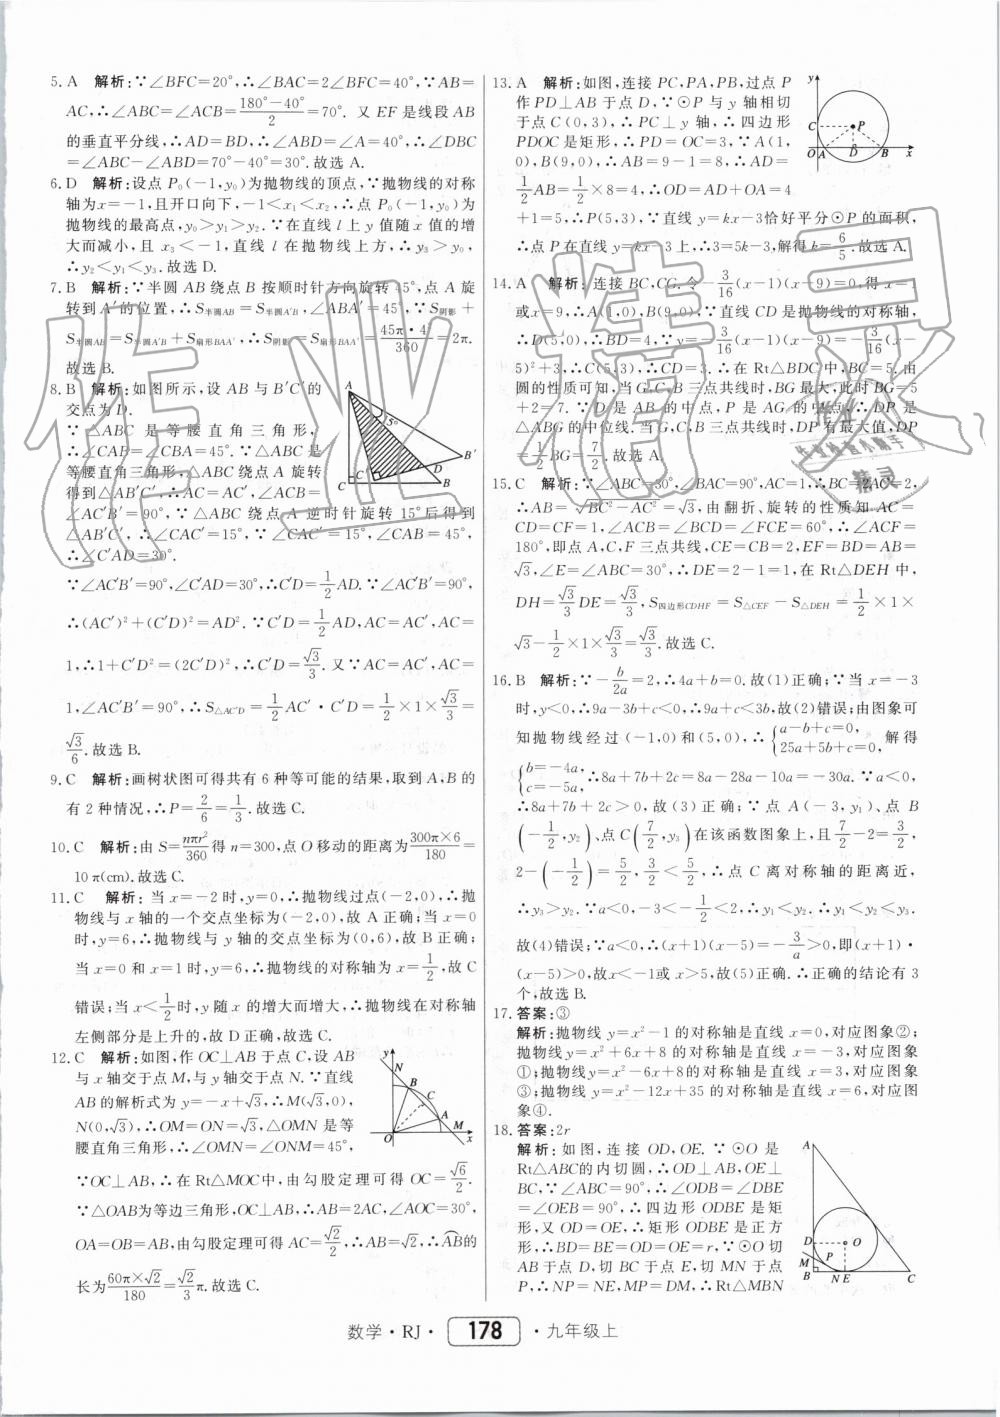 5. A　解析:∵∠BFC=20°,∴∠BAC=2∠BFC=40°,∵AB=
AC,∴∠ABC=∠ACB=\frac{180°-40°}{2}=70°. 又 EF 是线段 AB
的垂直平分线,∴AD=BD,∴∠DBA=∠A=40°,∴∠DBC
=∠ABC-∠ABD=70°-40°=30°.故选 A.
6. D　解析:设点 P₀(-1,y₀)为抛物线的顶点,∵抛物线的对称
轴为x=-1,且开口向下,-1<x₁<x₂,∴点 P₀(-1,y₀)为
抛物线的最高点,y₀>y₁>y₂.∵在直线 l 上 y 值随 x 值的增
大而减小,且 x₃<-1,直线 l 在抛物线上方,∴y₃>y₀,
∴y₂<y₁<y₃.故选 D.
7. B　解析:∵半圆 AB 绕点 B 按顺时针方向旋转 45°,点 A 旋
转到 A′的位置,∴S半圆AB=S半圆A′B,∠ABA′=45°,∵S阴影+
S半圆AB=S半圆A′B+S扇形BAA′,∴S阴影=S扇形BAA′=\frac{45π·4²}{360}=2π.
故选 B.
8. B　解析:如图所示,设 AB 与 B′C′的
交点为 D.
∵△ABC 是等腰直角三角形,
∴∠CAB=∠CBA=45°.∵△ABC 是
等腰直角三角形,△ABC 绕点 A 旋转
得到△AB′C′,∴AC=AC′,∠ACB=
∠AC′B′=90°,∵△ABC 绕点 A 逆时针旋转 15°后得到
△AB′C′,∴∠CAC′=15°,∵∠CAC′=15°,∠CAB=45°,
∴∠C′AD=30°.
∵∠AC′B′=90°,∠C′AD=30°,∴C′D=\frac{1}{2}AD.∵∠AC′B′=90°,
∴(AC′)²+(C′D)²=AD².∵C′D=\frac{1}{2}AD,AC=AC′,AC=
1,∴1+C′D²=(2C′D)²,∴C′D=\frac{√3}{3}.又∵AC=AC′,AC=
1,∠AC′B′=90°,∴S△AC′D=\frac{1}{2}AC′·C′D=\frac{1}{2}×1×\frac{√3}{3}=
\frac{√3}{6}.故选 B.
9. C　解析:画树状图可得共有 6 种等可能的结果,取到 A、B 的
有 2 种情况,∴P=\frac{2}{6}=\frac{1}{3}.故选 C.
10. C　解析:由 S=\frac{nπr²}{360}得 n=300,点 O 移动的距离为\frac{300π×6}{180}=
10 π(cm).故选 C.
11. C　解析:当 x=-2 时,y=0,∴抛物线过点(-2,0),∴抛
物线与 x 轴的一个交点坐标为(-2,0),故 A 正确;当 x=0
时,y=6,∴抛物线与 y 轴的交点坐标为(0,6),故 B 正确;
当 x=0 和 x=1 时,y=6,∴抛物线的对称轴为 x=\frac{1}{2},故 C
错误;当 x<\frac{1}{2}时,y 随 x 的增大而增大,∴抛物线在对称轴
左侧部分是上升的,故 D 正确,故选 C.
12. C　解析:如图,作 OC⊥AB 于点 C,设 AB
与 x 轴交于点 M,与 y 轴交于点 N.∵直线
AB 的解析式为 y=-x+√3,∴M(√3,0),
N(0,√3),∴OM=ON=√3,△OMN 是等
腰直角三角形,∴∠OMN=∠ONM=45°,
∵OC⊥AB,∴在 Rt△MOC中,由勾股定理可得 OC=\frac{√6}{2}.
∵△OAB为等边三角形,OC⊥AB,∴AB=2AC,∠AOC=30°,
OA=OB=AB,由勾股定理可得 AC=\frac{√2}{2},∴AB=√2,∴⌒AB的
长为\frac{60π×√2}{180}=\frac{√2}{3}π.故选 C.
13. A　解析:如图,连接 PC,PA,PB,过点 P
作 PD⊥AB 于点 D,∵⊙P 与 y 轴相切
于点 C(0,3),∴PC⊥y 轴,∴四边形
PDOC 是矩形,∴PD=OC=3,∵A(1,
0),B(9,0),∴AB=9-1=8,∴AD=
\frac{1}{2}AB=\frac{1}{2}×8=4,∴OD=AD+OA=4
+1=5,∴P(5,3),∵直线 y=kx-3恰好平分⊙P 的面积,
∴点 P 在直线 y=kx-3 上,∴3=5k-3,解得 k=\frac{6}{5}.故选 A.
14. A　解析:连接 BC,CG.令-\frac{3}{16}(x-1)(x-9)=0,得 x=1
或x=9,∴A(1,0),B(9,0),∵直线 CD 是抛物线的对称轴,
∴D(5,0),∴BD=4,∵y=-\frac{3}{16}(x-1)(x-9)=-\frac{3}{16}(x-
5)²+3,∴C(5,3),∴CD=3.∴在 Rt△BDC中,BC=5.由
圆的性质可知,当 G、C、B 三点共线时,BG 最大,此时 BG=5
+2=7.∵D 是 AB 的中点,P 是 AG 的中点,∴DP 是
△ABG 的中位线.当 G、C、B 三点共线时,DP 有最大值,DP
=\frac{1}{2}BG=\frac{7}{2}.故选 A.
15. C　解析:∵∠ABC=30°,∠BAC=90°,AC=1,∴BC=2AC=2,
∴AB=√(BC²-AC²)=√3,由翻折、旋转的性质知 AC=
CD=CF=1,∠ACB=∠BCD=∠FCE=60°,∴∠ACF=
180°,即点 A、C、F 三点共线,CE=CB=2,EF=BD=AB=
√3,∠E=∠ABC=30°,∴DE=2-1=1,在 Rt△DEH 中,
DH=\frac{√3}{3}DE=\frac{√3}{3},S四边形CDHF=S△CEF-S△DEH=\frac{1}{2}×1×
√3-\frac{1}{2}×1×\frac{√3}{3}=\frac{√3}{3}.故选 C.
16. B　解析:∵-\frac{b}{2a}=2,∴4a+b=0.故(1)正确;∵当 x=-3
时,y<0,∴9a-3b+c<0,∴9a+c<3b,故(2)错误;由图象可
知抛物线经过(-1,0)和(5,0),∴{a-b+c=0, 25a+5b+c=0, 解得
{b=-4a, c=-5a, ∴8a+7b+2c=8a-28a-10a=-30a.∵a<0,
∴8a+7b+2c>0,故(3)正确;∵点 A(-3,y₁)、点 B
(-\frac{1}{2},y₂)、点 C(\frac{7}{2},y₃)在该函数图象上,且\frac{7}{2}-2=\frac{3}{2},
2-(-\frac{1}{2})=\frac{5}{2},\frac{3}{2}<\frac{5}{2},∴点 C 离对称轴的距离近,
∴y₃>y₂.∵a<0,-3<-\frac{1}{2}<2,∴y₁<y₂.∴y₁<y₂<y₃.
故(4)错误;∵a<0,∴(x+1)(x-5)=-\frac{3}{a}>0,即(x+1)·
(x-5)>0,故x<-1或x>5,故(5)正确.∴正确的结论有 3
个,故选 B.
17. 答案:③
解析:抛物线 y=x²-1 的对称轴是直线 x=0,对应图象②;
抛物线 y=x²+6x+8 的对称轴是直线 x=-3,对应图象
①;抛物线 y=x²-6x+8的对称轴是直线 x=3,对应图象
③;抛物线 y=x²-12x+35 的对称轴是直线 x=6,对应图
象④.
18. 答案:2r
解析:如图,连接 OD,OE.∵⊙O 是
Rt△ABC的内切圆,∴OD⊥AB,OE⊥
BC,∵∠ABC=90°,∴∠ODB=∠DBE
=∠OEB=90°,∴四边形 ODBE 是矩
形,又 OD=OE,∴矩形 ODBE 是正方
形,∴BD=BE=OD=OE=r,∵⊙O 切
AB于点 D,切 BC于点 E,切 MN 于点
P,∴NP=NE,MP=DM,∴Rt△MBN
数学·RJ· 178 ·九年级上
作业精灵